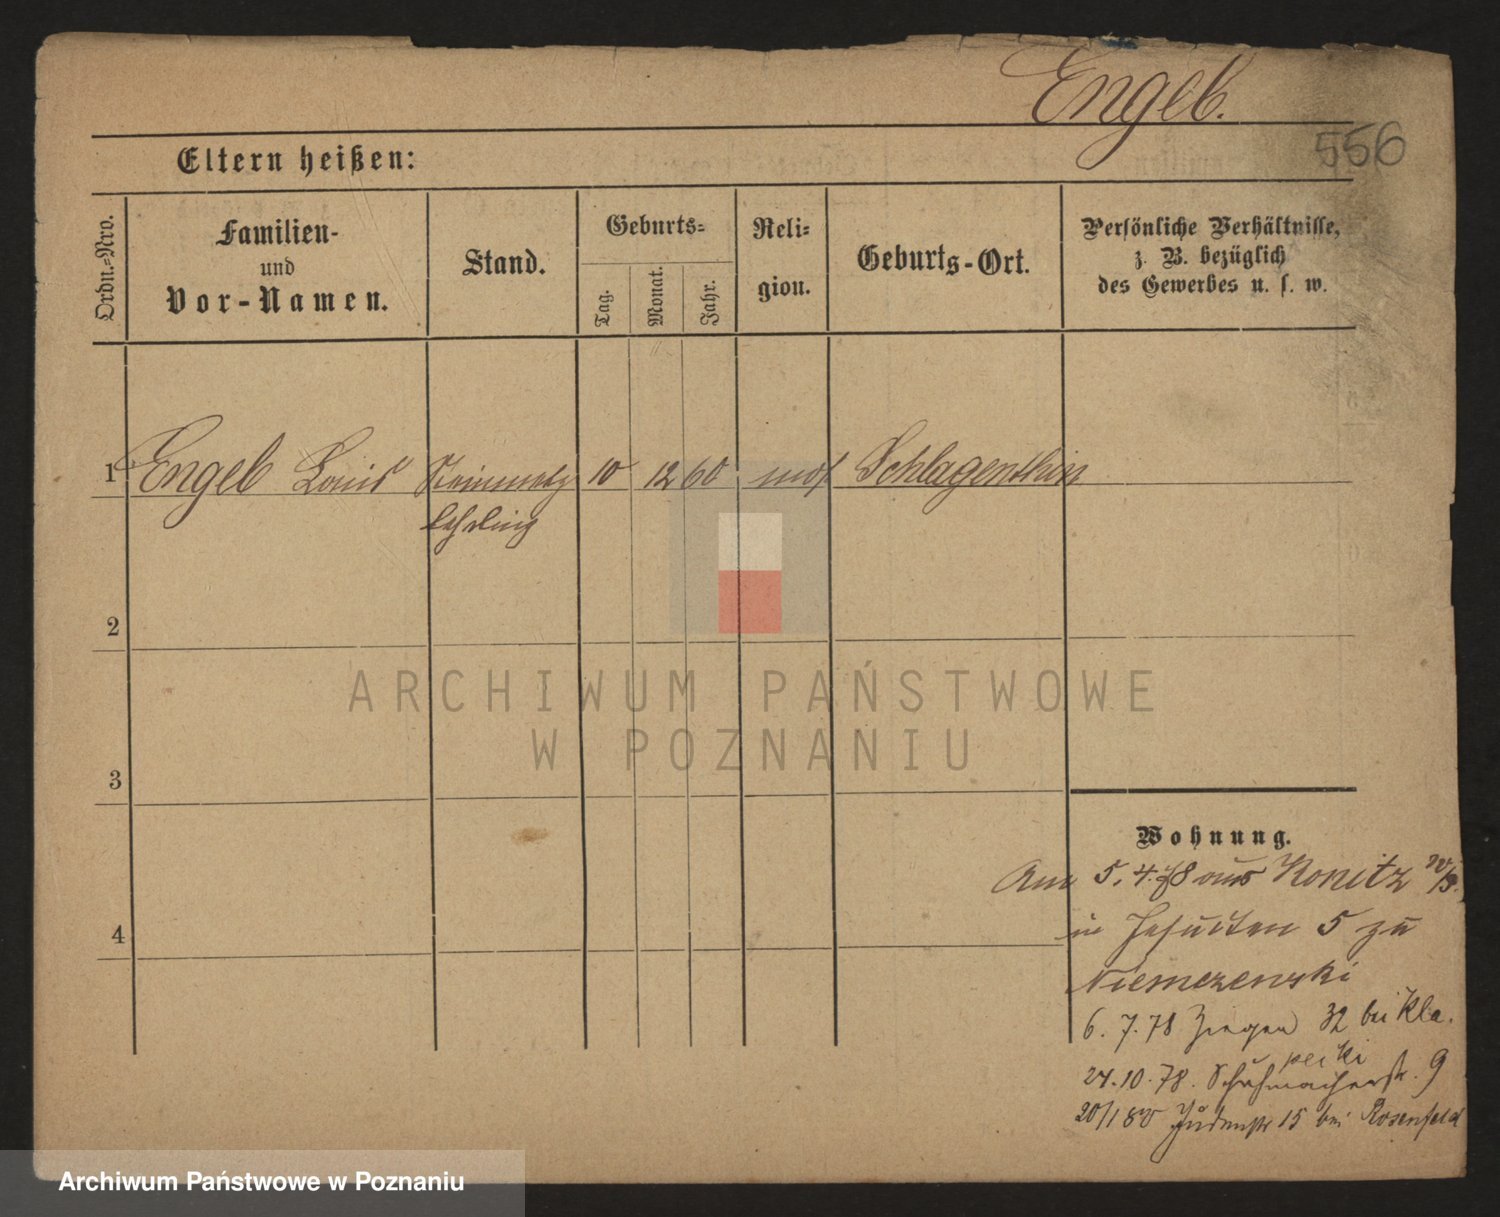 Engel.
556
Eltern heißen:
Ordn.-Nro.
Familien-
und
Vor-Namen.
Stand.
Geburts-
Tag.
Monat.
Jahr.
Reli-
gion.
Geburts-Ort.
Persönliche Verhältnisse,
z. B. bezüglich
des Gewerbes u. s. w.
1 Engel Louis Steinmetz 10 12 60 mos Schlagenthin
lehrling
2
3
4
Wohnung.
Am 5. 4. 78 aus Konitz
in Jesuiten 5 zu
Niemczewski
6. 7. 78 Ziegen 32 bei Kla.
perki
24. 10. 78. Schuhmacherstr. 9
20/1 80 Judenstr 15 bei Rosenfeld
ARCHIWUM PAŃSTWOWE
W POZNANIU
Archiwum Państwowe w Poznaniu